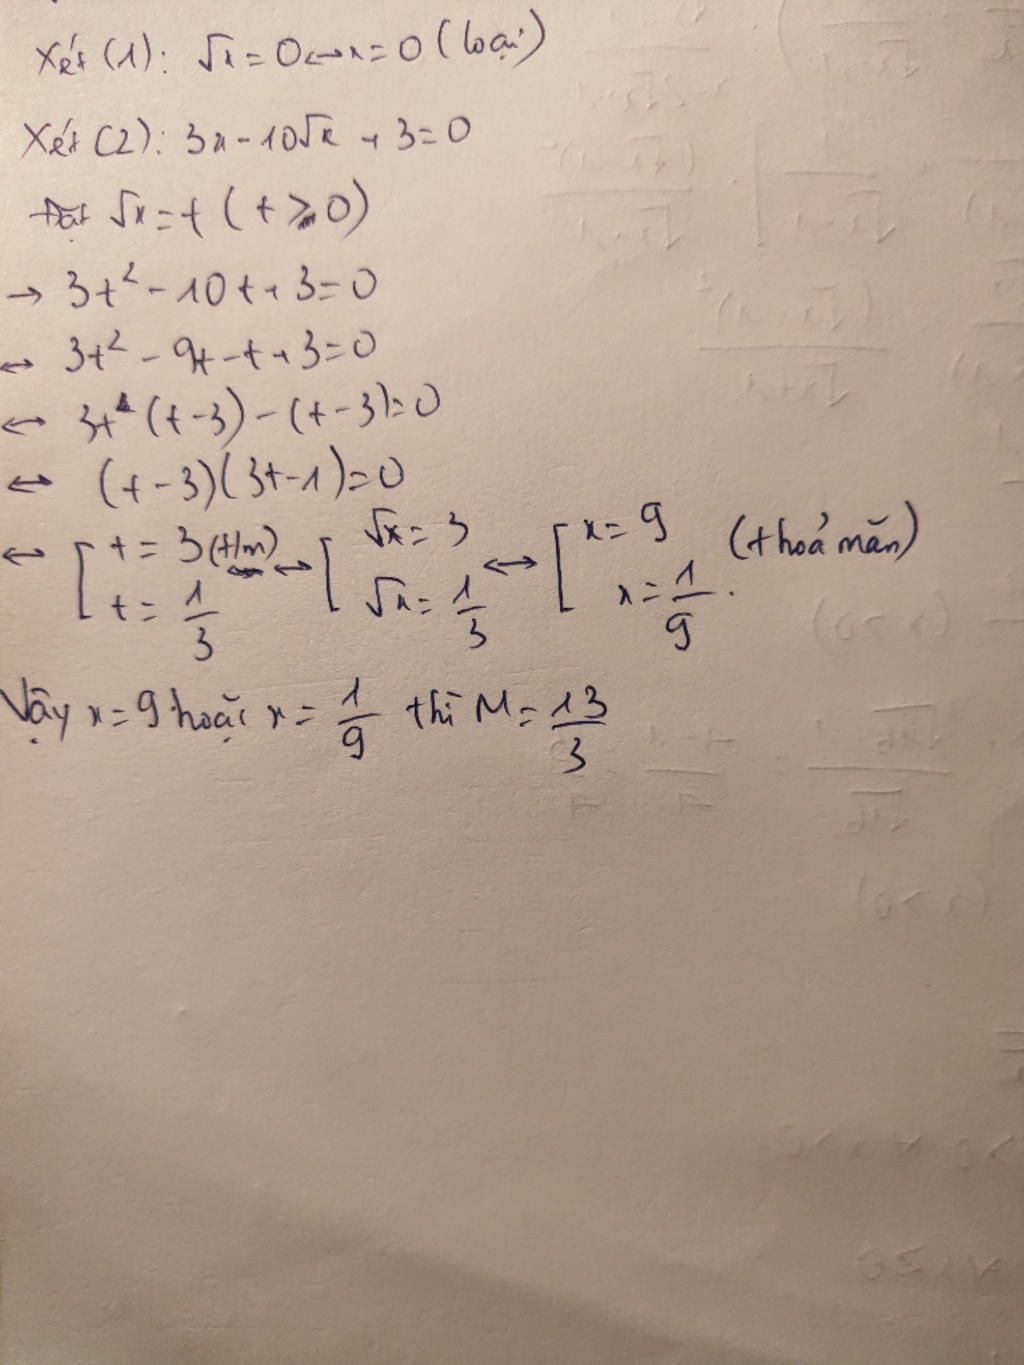 Xét (1): √x = 0 ↔ x = 0 (loại)
Xét (2): 3x - 10√x + 3 = 0
Đặt √x = t (t ≥ 0)
→ 3t² - 10t + 3 = 0
↔ 3t² - 9t - t + 3 = 0
↔ 3t (t - 3) - (t - 3) = 0
↔ (t - 3)(3t - 1) = 0
↔ [ t = 3 (t/m) ↔ [ √x = 3 ↔ [ x = 9 (thoả mãn)
t = 1/3 √x = 1/3 x = 1/9.
Vậy x = 9 hoặc x = 1/9 thì M = 13/3